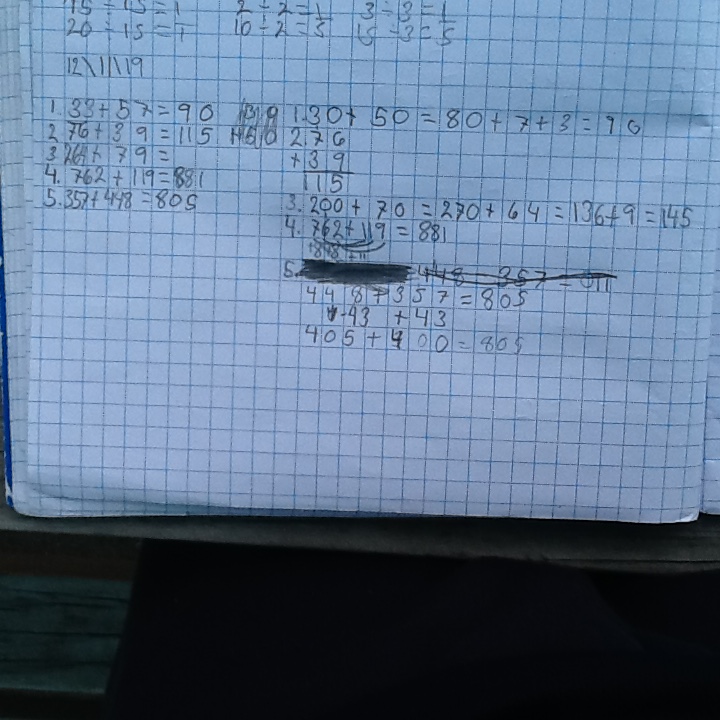 15 ÷ 15 = 1 2 ÷ 2 = 1 3 ÷ 3 = 1
20 ÷ 15 = 1 10 ÷ 2 = 5 15 ÷ 3 = 5
12\11\19
1. 33 + 57 = 90 1. 30 + 50 = 80 + 7 + 3 = 90
2. 76 + 39 = 115 2. 76
+ 39
115
3. 266 + 79 =
4. 762 + 119 = 881
5. 357 + 448 = 805
3. 200 + 70 = 270 + 64 = 136 + 9 = 145
4. 762 + 119 = 881
5. 448 - 357 =
448 + 357 = 805
- 43 + 43
405 + 400 = 805